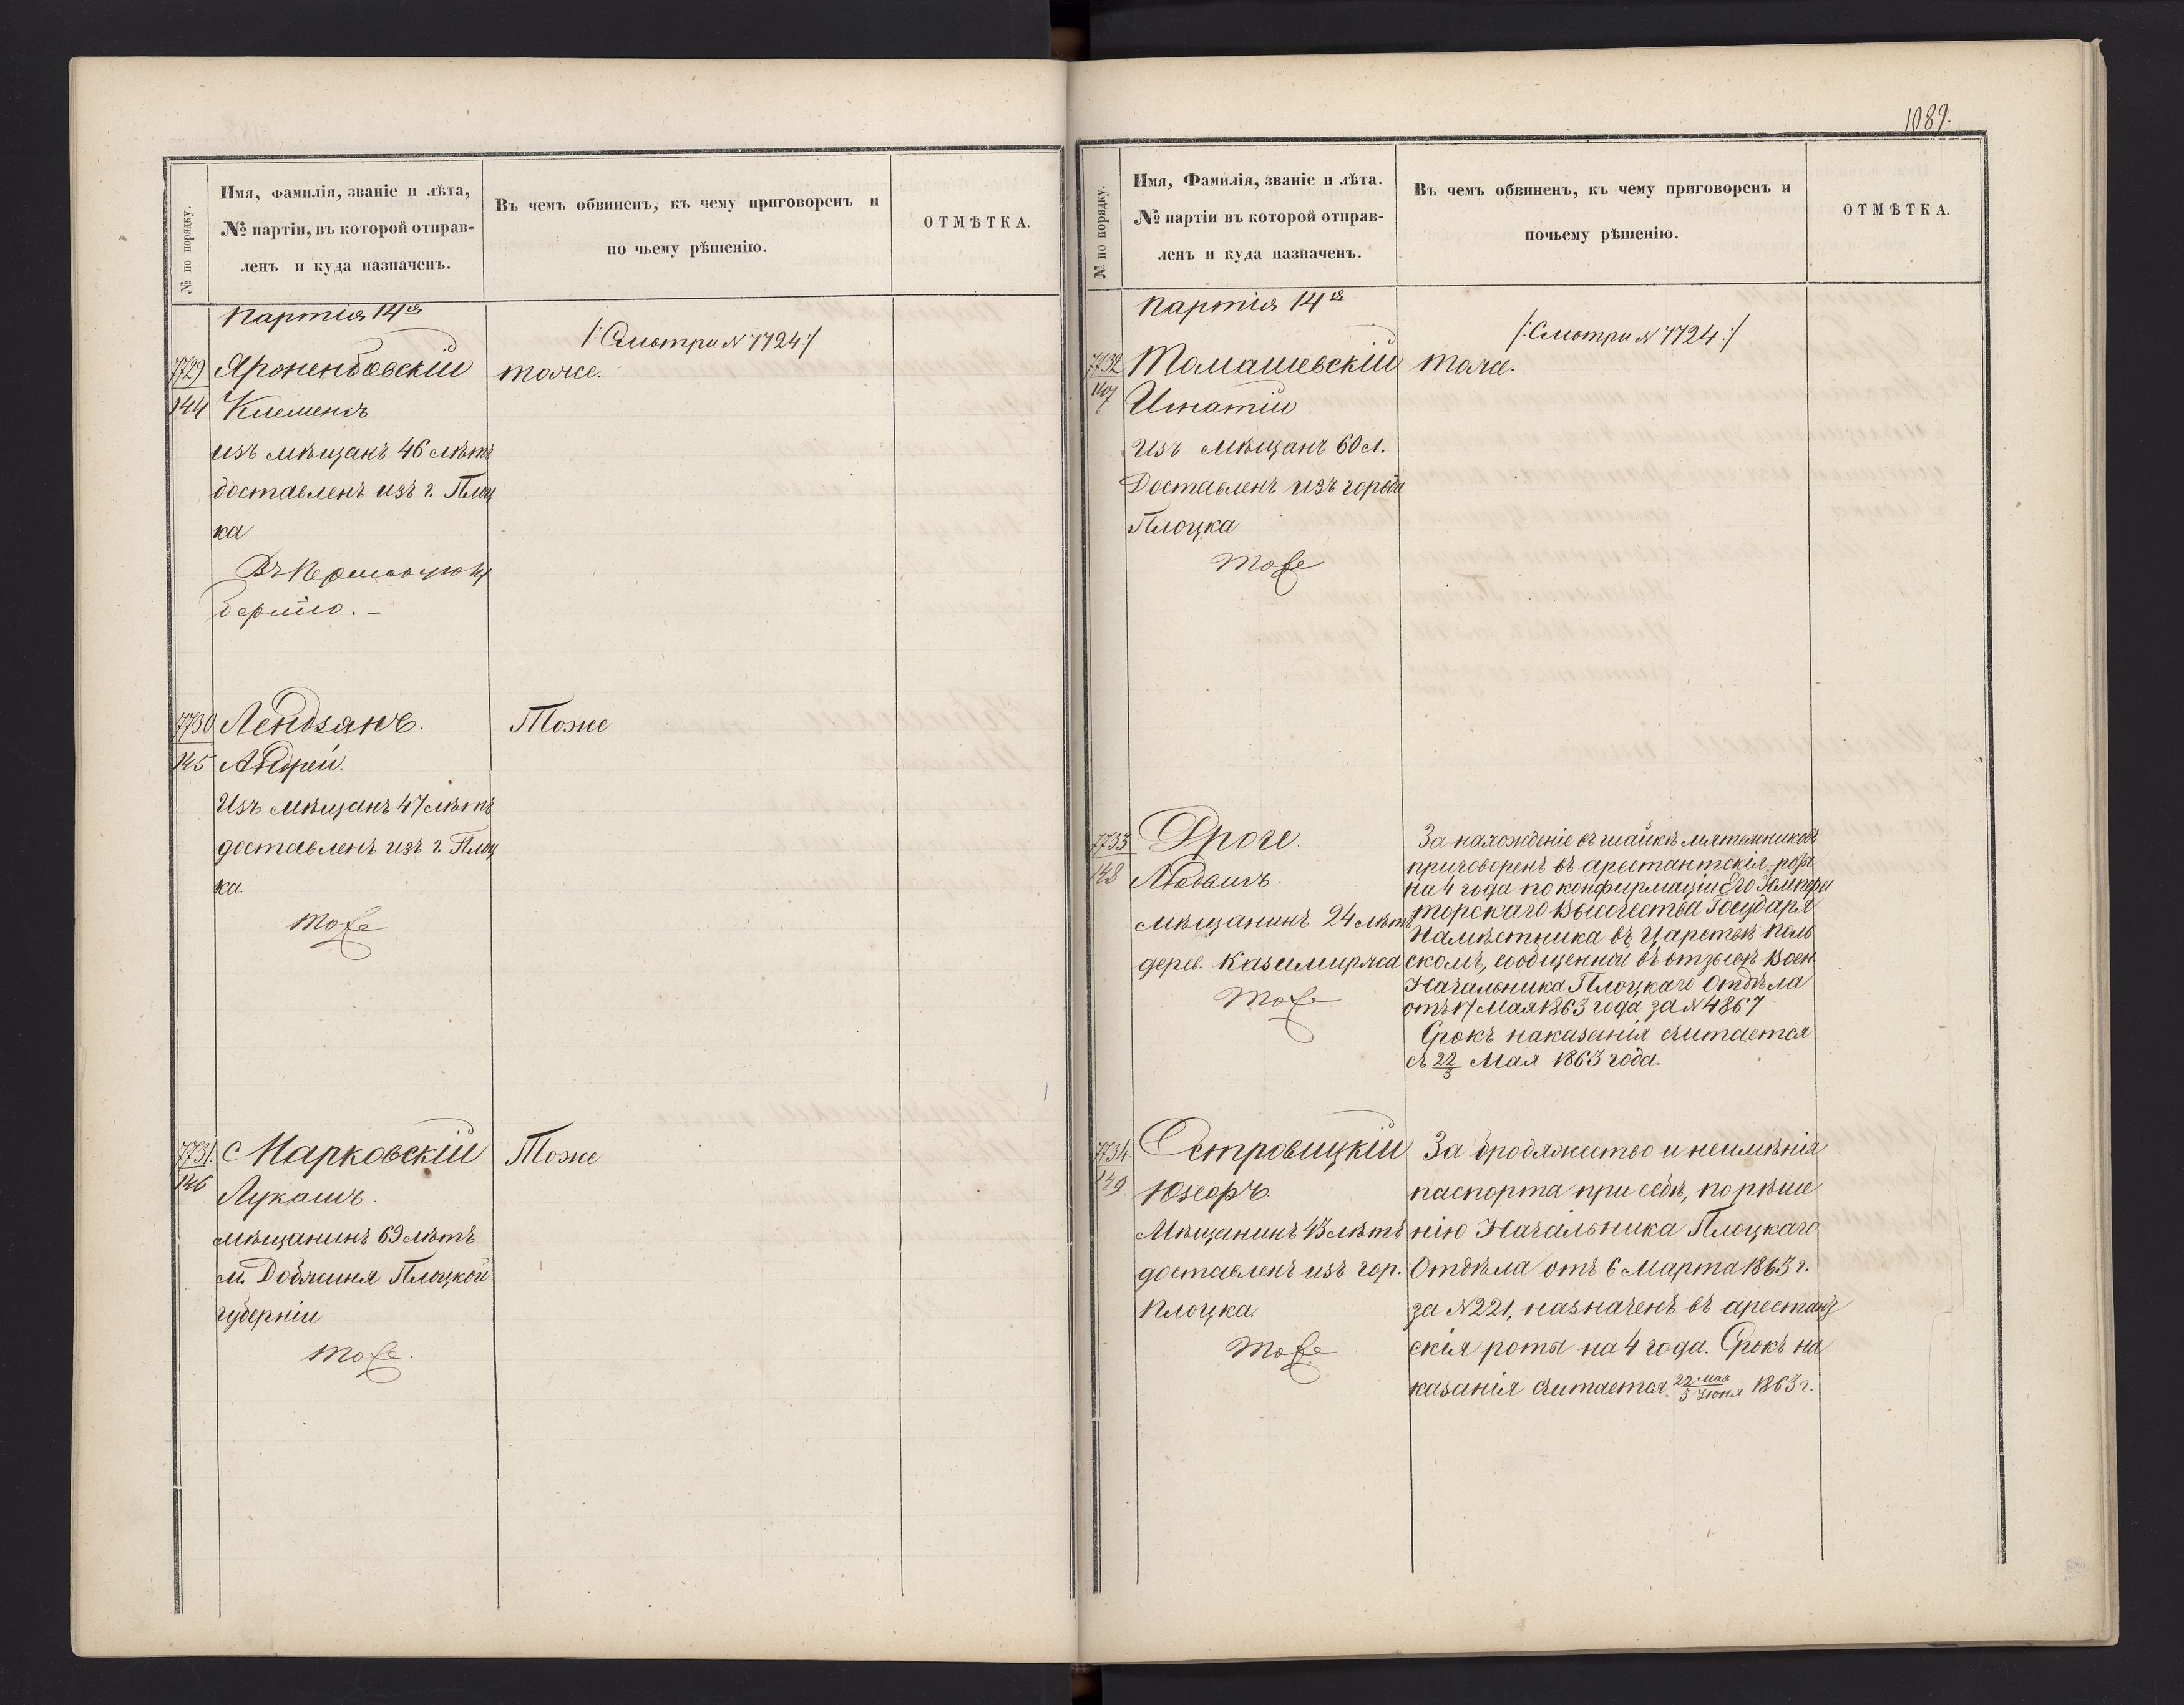 № по порядку.
Имя, фамилія, званіе и лѣта,
№ партіи, въ которой отправ-
ленъ и куда назначенъ.
Въ чемъ обвиненъ, къ чему приговоренъ и
по чьему рѣшенію.
ОТМѢТКА.
Партія 14я
/:Смотри N 7724:/
7729
144
тоже.
Клеменсъ
изъ мѣщанъ 46 лѣтъ
доставленъ изъ г. Плоц
ка
Въ Пермскую гу
бернію. –
7730
145
Лендзянъ.
Тоже
Андрей.
Изъ мѣщанъ 47 лѣтъ
доставленъ изъ г. Плоц
ка.
тоже
7731.
146
Марковскій
Тоже
Лукашъ.
мѣщанинъ 69 лѣтъ
м. Добжиня Плоцкой
губерніи
тоже.
1089.
№ по порядку.
Имя, Фамилія, званіе и лѣта.
№ партіи въ которой отправ-
ленъ и куда назначенъ.
Въ чемъ обвиненъ, къ чему приговоренъ и
почьему рѣшенію.
ОТМѢТКА.
Партія 14я
/:Смотри N 7724:/
7732
147
Томашевскій
тоже.
Игнатій
Изъ мѣщанъ 60 л.
Доставленъ изъ города
Плоцка
тоже
7733
148
Дроге.
Людвигъ.
мѣщанинъ 24 лѣтъ
дерев. Казимиржа
тоже
За нахожденіе въ шайкѣ мятежниковъ
приговоренъ въ арестантскія роты
на 4 года по конфирмаціи Его Импера
торскаго Высочества Государя
Намѣстника въ Царствѣ Поль
скомъ, сообщенной въ отзывѣ Воен.
Начальника Плоцкаго Отдѣла
отъ 17 Мая 1863 года за N 4867
Срокъ наказанія считается
съ 22/3 Мая 1863 года.
7734.
149
Островицкій
Юзефъ.
Мѣщанинъ 43 лѣтъ
доставленъ изъ гор.
Плоцка.
тоже
За бродяжество и неимѣнія
паспорта при себѣ, по рѣше
нію Начальника Плоцкаго
Отдѣла отъ 6 Марта 1863 г.
за N 221, назначенъ въ арестант
скія роты на 4 года. Срокъ на
казанія считается 22 мая/3 Июня 1863 г.